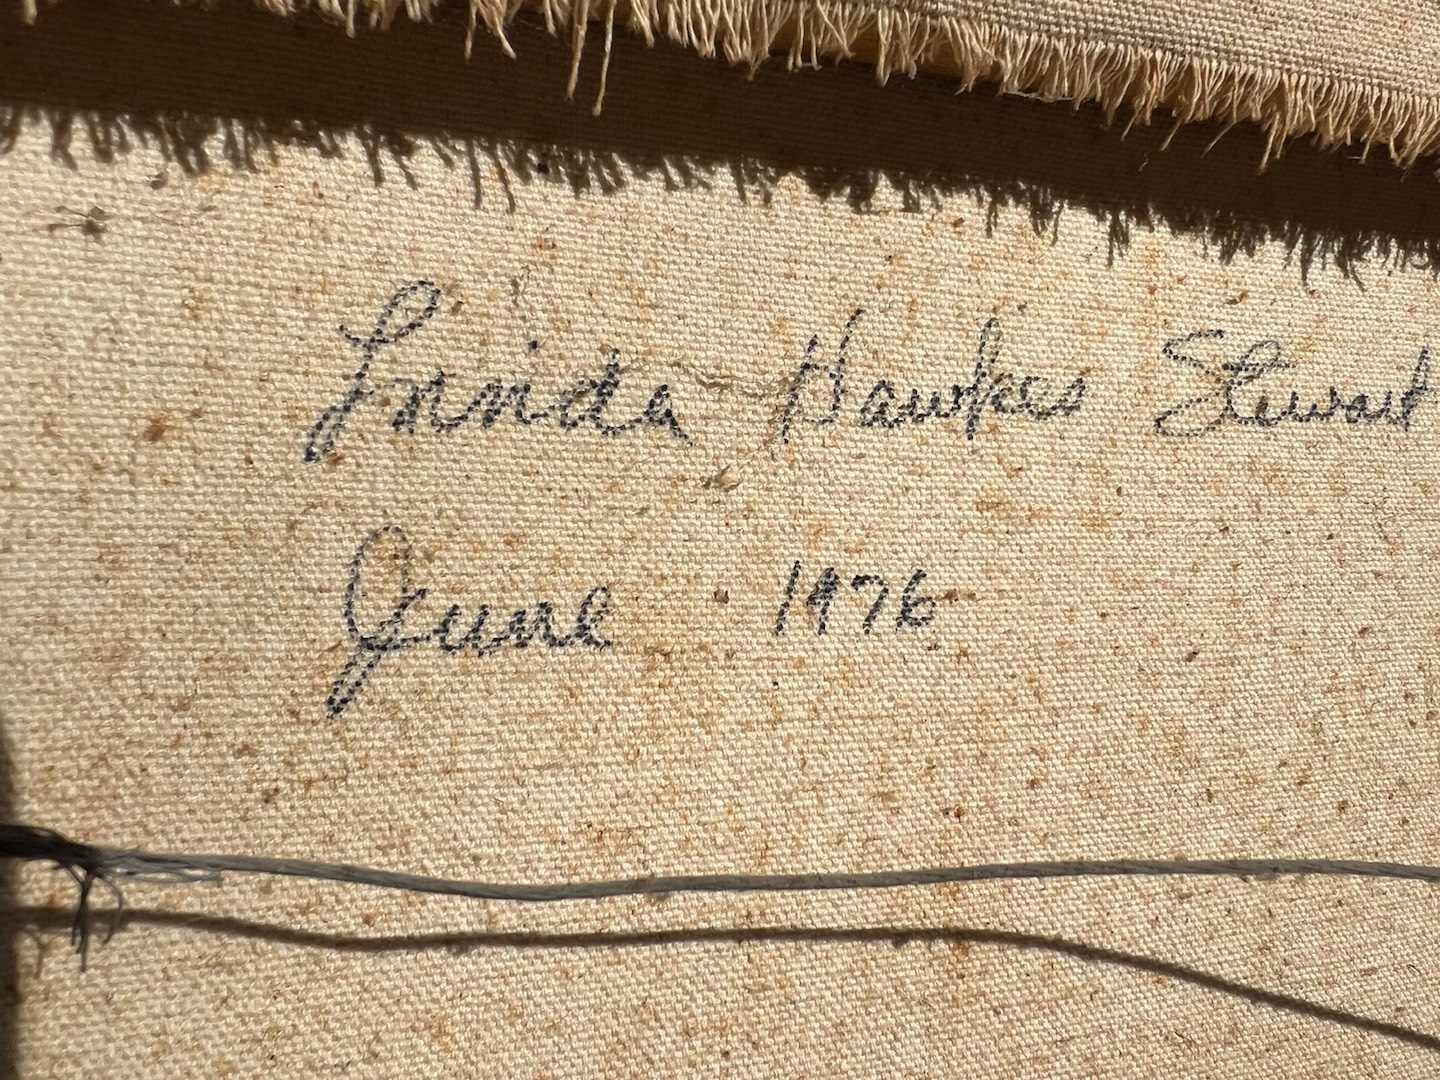 Linda Hawkes Stewart
June 1976